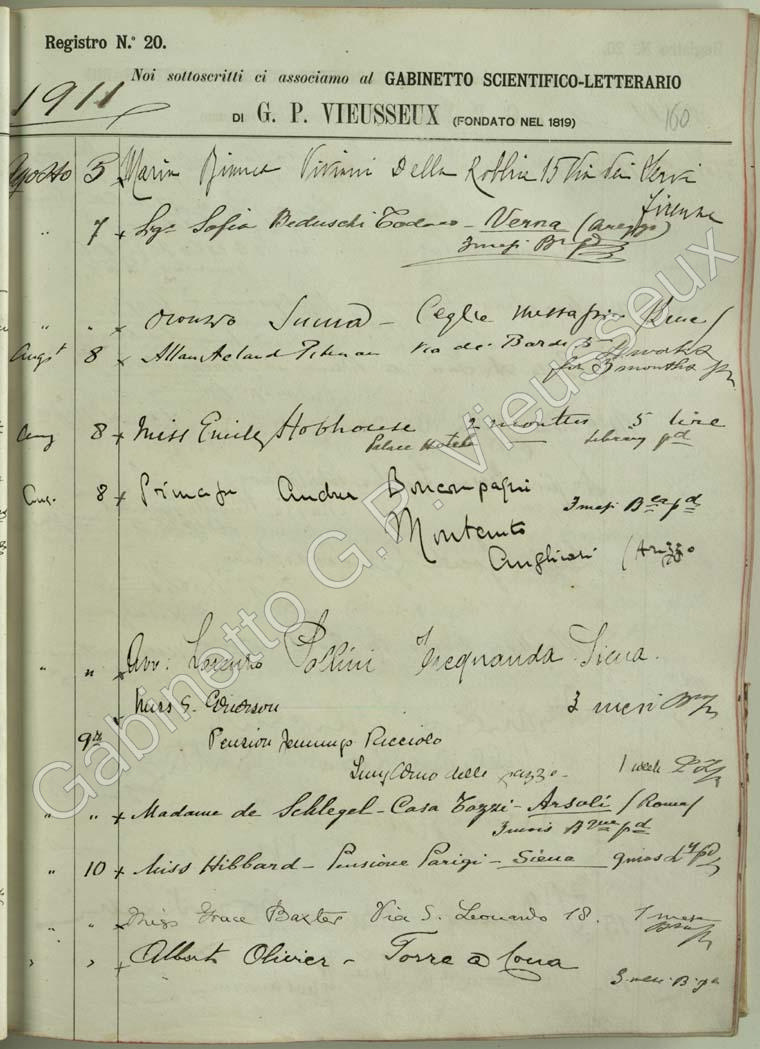 Registro N.º 20.
Noi sottoscritti ci associamo al GABINETTO SCIENTIFICO-LETTERARIO
1911
DI G. P. VIEUSSEUX (FONDATO NEL 1819)
160
Agosto 5 Maria Bianca Viviani Della Robbia 15 Via dei Servi
Firenze
" 7 Sofia Beduschi Todaro - Verna (Arezzo)
3 mesi
" " Oronzo Suma - Ceglie Messapico
Augst 8 Allan Acland Via de' Bardi
4 works
for 3 months
Aug 8 Miss Emily Hobhouse 2 months 5 lire
Palace Hotel Library pd
Aug. 8 Principe Andrea Boncompagni
3 mesi pd
Montauto
Anghiari (Arezzo
" " Avv: Lorenzo Pollini Trequanda. Siena.
3 mesi
9 Pension Jennings Riccioli
Lung'Arno delle Grazie - 1 week
" " Madame de Schlegel - Casa Tozzi - Arsoli (Roma)
3 mois pd
" 10 Miss Hibbard - Pensione Parigi - Siena
" " Miss Grace Baxter Via S. Leonardo 18. 1 mese
" " Albert Olivier - Torre a Cona
3 mesi
Gabinetto G.P. Vieusseux